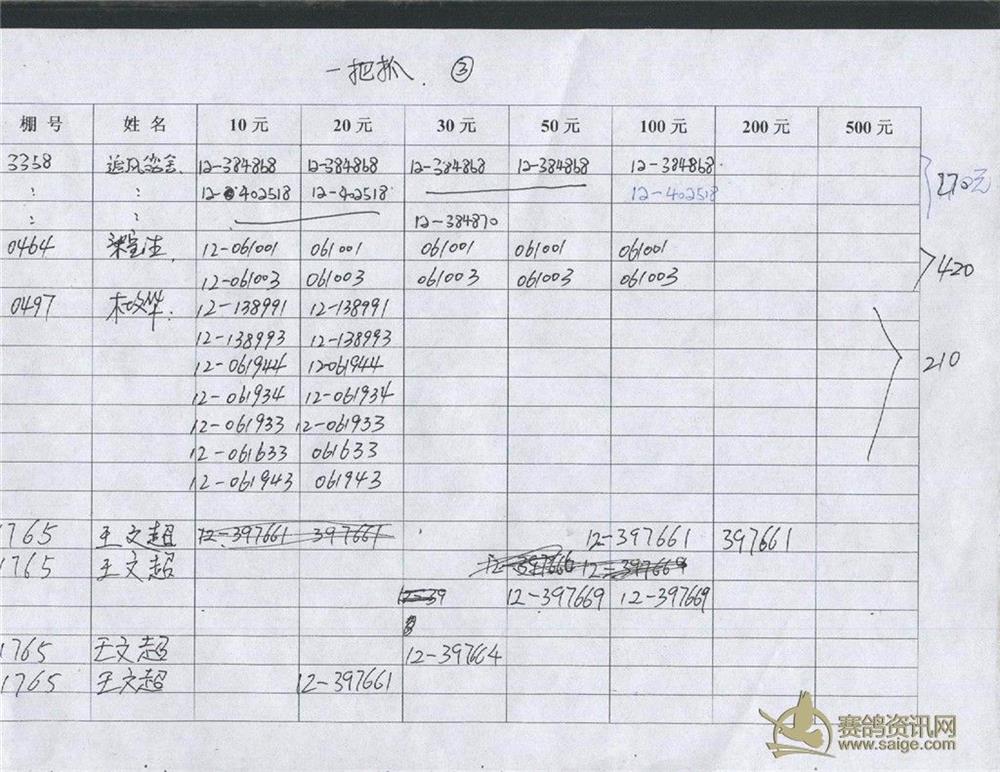 一把抓 ③
棚号 姓名 10元 20元 30元 50元 100元 200元 500元
3358 追风鸽舍 12-384868 12-384868 12-384868 12-384868 12-384868
: : 12-402518 12-402518 12-402518 270元
: : 12-384870
0464 12-061001 061001 061001 061001 061001
12-061003 061003 061003 061003 061003 420
0497 12-138991 12-138991
12-138993 12-138993
12-061944 12061944 210
12-061934 12-061934
12-061933 12-061933
12-061633 061633
12-061943 061943
1765 王文超 12-397661 397661 12-397661 397661
1765 王文超 12-397666 12-397669
12-39 12-397669 12-397669
1765 王文超 12-397664
1765 王文超 12-397661
赛鸽资讯网
www.saige.com